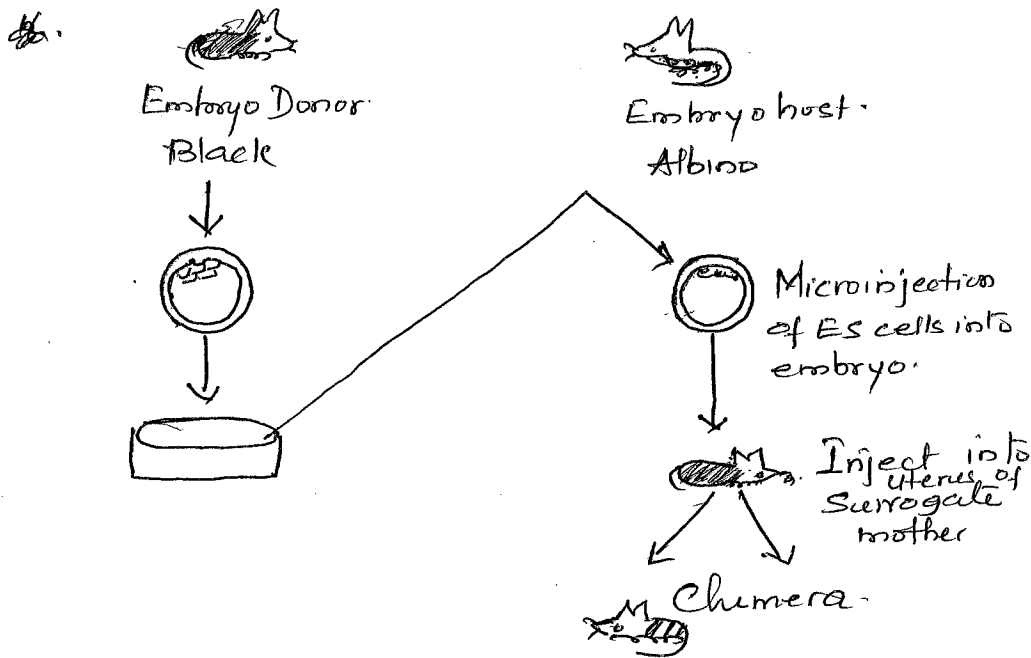 Embryo Donor.
Black
Embryo host.
Albino
Microinjection
of ES cells into
embryo.
Inject into
uterus of
Surrogate
mother
Chimera.